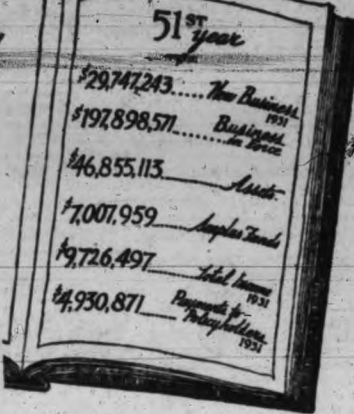 51ST
year
$29,747,243..... New Business
1931
$197,898,571..... Business
in Force
$46,855,113 Assets
$7,007,959 Surplus Funds
$9,726,497 Total Income
1931
$4,930,871 Payments to
Policyholders
1931